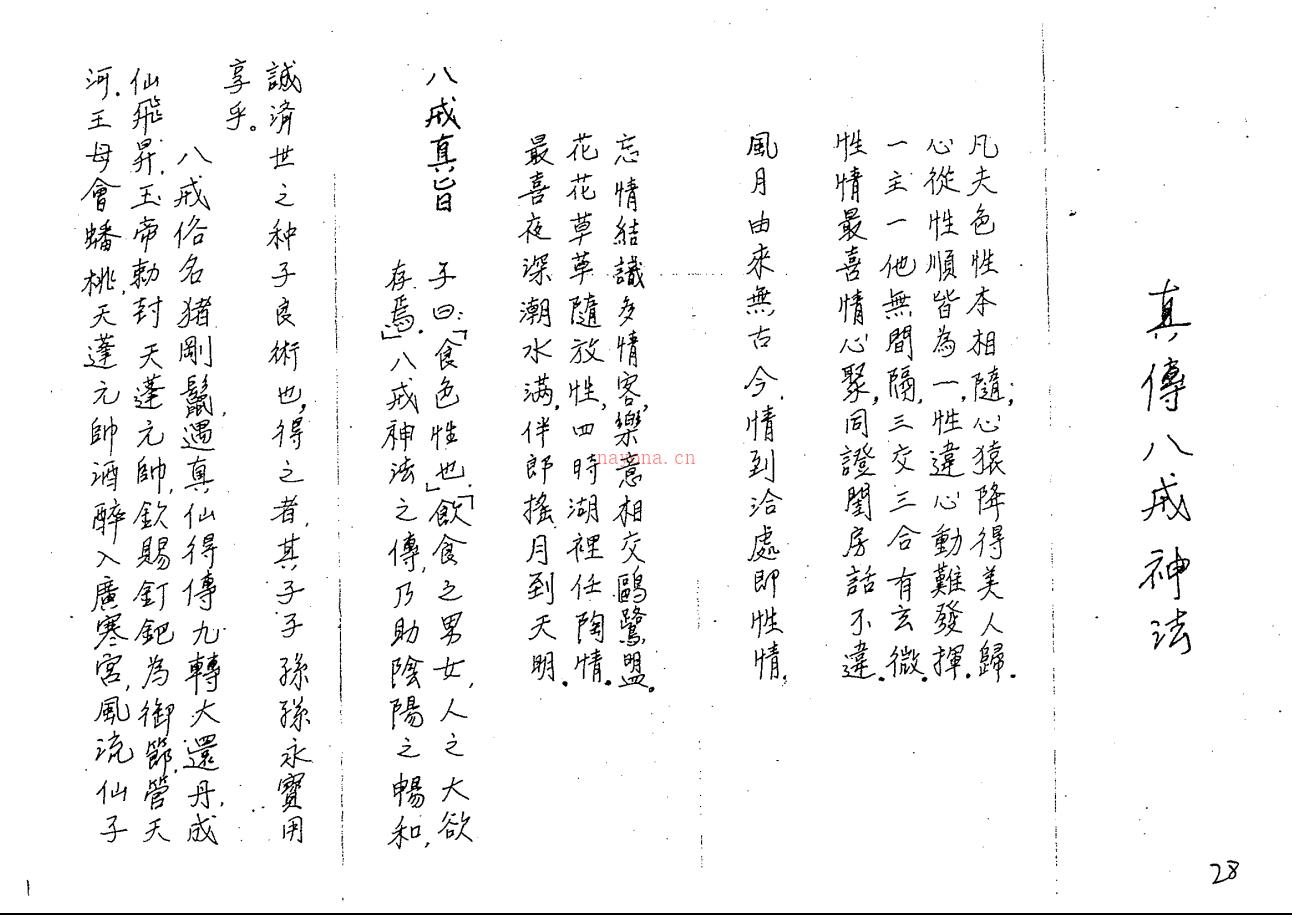 真傳八戒神法
凡夫色性本相隨;心猿降得美人歸.
心從性順皆為一,性違心動難發揮.
一主一他無間隔,三交三合有玄微.
性情最喜情心聚,同證閨房話不違.
風月由來無古今.情到洽處即性情,
忘情結識多情客,樂意相交鷗鷺盟.
花花草草隨放性,四時湖裡任陶情.
最喜夜深潮水滿,伴郎搖月到天明.
八戒真旨 子曰:「食色性也.」「飲食之男女,人之大欲
存焉.」八戒神法之傳,乃助陰陽之暢和,
誠済世之种子良術也,得之者,其子子孫孫永寶用
享乎。
八戒俗名猪剛鬣,遇真仙得傳九轉大還丹,成
仙飛昇,玉帝勅封天蓬元帥,欽賜釘鈀為御節,管天
河.王母會蟠桃,天蓬元帥酒醉入廣寒宮,風流仙子
nayona.cn
28
1